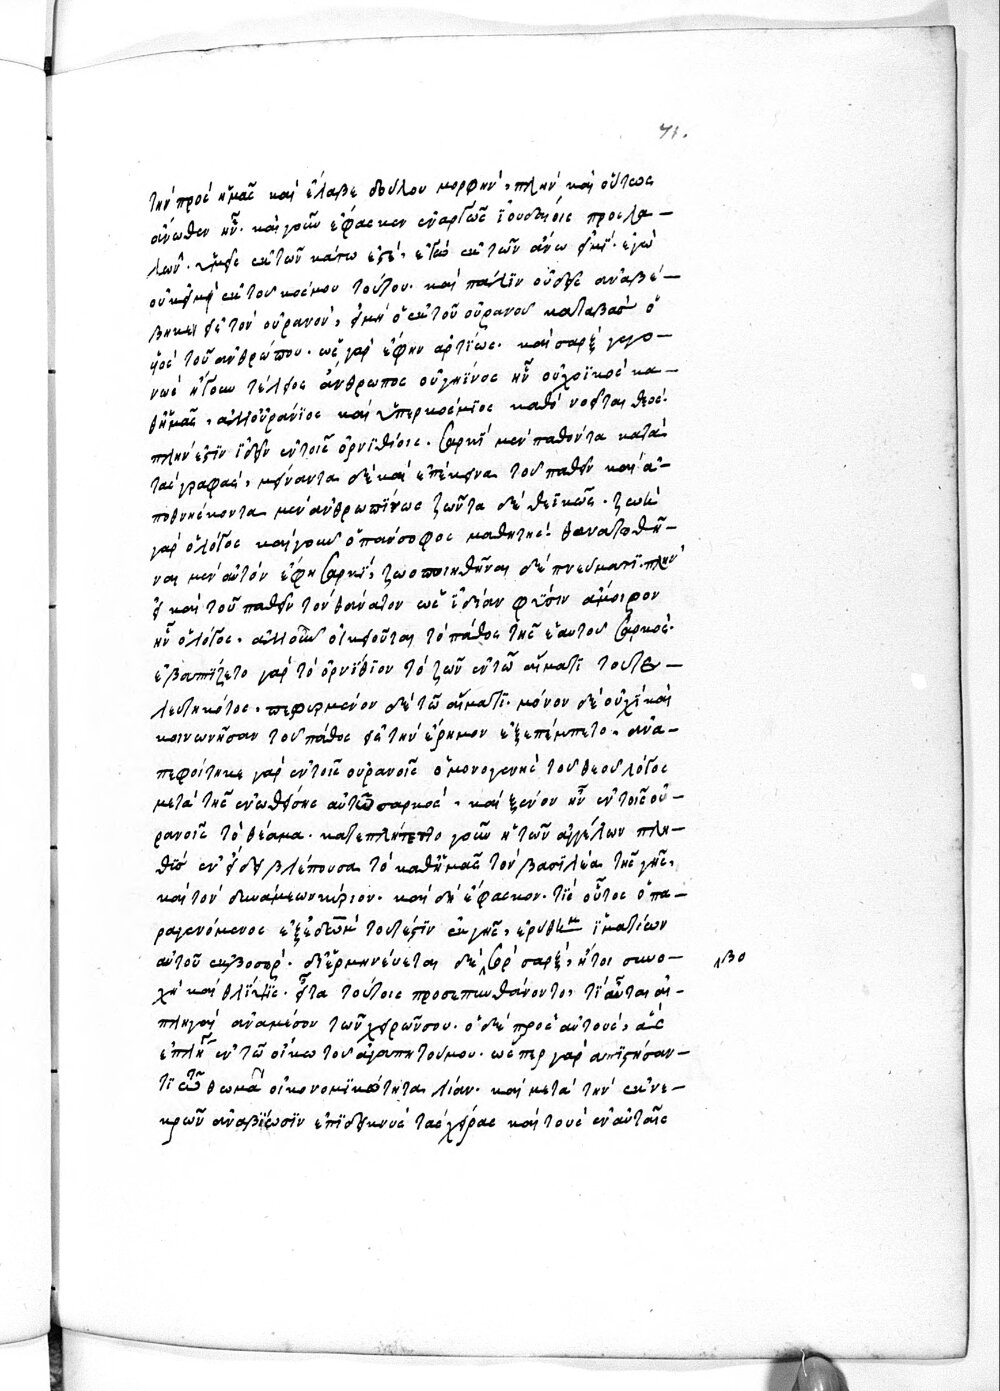 71.
τὴν πρὸς ἡμᾶς καὶ ἔλαβε δούλου μορφήν, πλὴν καὶ οὕτως
ἄνωθεν ἦν. καὶ γοῦν ἔφασκεν ἐναργῶς ἰουδαίοις προσλα-
λῶν. ὑμεῖς ἐκ τῶν κάτω ἐστέ, ἐγὼ ἐκ τῶν ἄνω εἰμί. ἐγὼ
οὐκ εἰμὶ ἐκ τοῦ κόσμου τούτου. καὶ πάλιν οὐδεὶς ἀναβέ-
βηκεν εἰς τὸν οὐρανόν, εἰ μὴ ὁ ἐκ τοῦ οὐρανοῦ καταβὰς ὁ
υἱὸς τοῦ ἀνθρώπου. ὡς γὰρ ἔφην ἀρτίως. καὶ σὰρξ γεγο-
νὼς ἤγουν τέλειος ἄνθρωπος οὐ γήϊνος ἦν οὐ χοϊκὸς κα-
θ' ἡμᾶς, ἀλλ' οὐράνιος καὶ ὑπερκόσμιος καθὸ νοεῖται θεός.
πλὴν ἔστιν ἰδεῖν ἐν τοῖς ὀρνιθίοις. σαρκὶ μὲν παθόντα κατὰ
τὰς γραφάς, μείναντα δὲ καὶ ἐπέκεινα τοῦ παθεῖν καὶ ἀ-
ποθνήσκοντα μὲν ἀνθρωπίνως ζῶντα δὲ θεϊκῶς. ζωὴ
γὰρ ὁ λόγος καὶ γοῦν ὁ πάνσοφος μαθητὴς θανατωθῆ-
ναι μὲν αὐτὸν ἔφη σαρκί, ζωοποιηθῆναι δὲ πνεύματι. πλὴν
εἰ καὶ τοῦ παθεῖν τὸν θάνατον ὡς ἰδίαν φύσιν ἄμοιρον
ἦν ὁ λόγος, ἀλλ' οὖν οἰκειοῦται τὸ πάθος τῆς ἑαυτοῦ σαρκός.
ἐβαπτίζετο γὰρ τὸ ὀρνίθιον τὸ ζῶν ἐν τῷ αἵματι τοῦ τε-
λευτηκότος. πεφυρμένον δὲ τῷ αἵματι. μόνον δὲ οὐχὶ καὶ
κοινωνῆσαν τοῦ πάθος εἰς τὴν ἔρημον ἐξεπέμπετο. ἀνα-
πεφοίτηκε γὰρ ἐν τοῖς οὐρανοῖς ὁ μονογενὴς τοῦ θεοῦ λόγος
μετὰ τῆς ἑνωθείσης αὐτῷ σαρκός. καὶ ξένον ἦν ἐν τοῖς οὐ-
ρανοῖς τὸ θέαμα. κατεπλήττετο γοῦν ἡ τῶν ἀγγέλων πλη-
θὺς ἐν εἴδει βλέπουσα τὸ καθ' ἡμᾶς τὸν βασιλέα τῆς γῆς,
καὶ τὸν δυνάμεων κύριον. καὶ δὴ ἔφασκον. τίς οὗτος ὁ πα-
ραγενόμενος ἐξ ἐδὼμ τουτέστιν ἐκ γῆς, ἐρύθημα ἱματίων
αὐτοῦ ἐκ βοσόρ. διερμηνεύεται δὲ σὸρ σάρξ, ἤτοι συνο-
βο
χὴ καὶ θλίψις. εἶτα τούτοις προσεπυνθάνοντο, τί αὗται αἱ
πληγαὶ ἀναμέσον τῶν χειρῶν σου. ὁ δὲ πρὸς αὐτούς, ἃς
ἐπλήγην ἐν τῷ οἴκῳ τοῦ ἀγαπητοῦ μου. ὥσπερ γὰρ ἀπιστήσαν-
τι τῷ θωμᾷ οἰκονομικώτατα λίαν. καὶ μετὰ τὴν ἐκ νε-
κρῶν ἀναβίωσιν ἐπιδεικνὺς τὰς χεῖρας καὶ τοὺς ἐν αὐταῖς